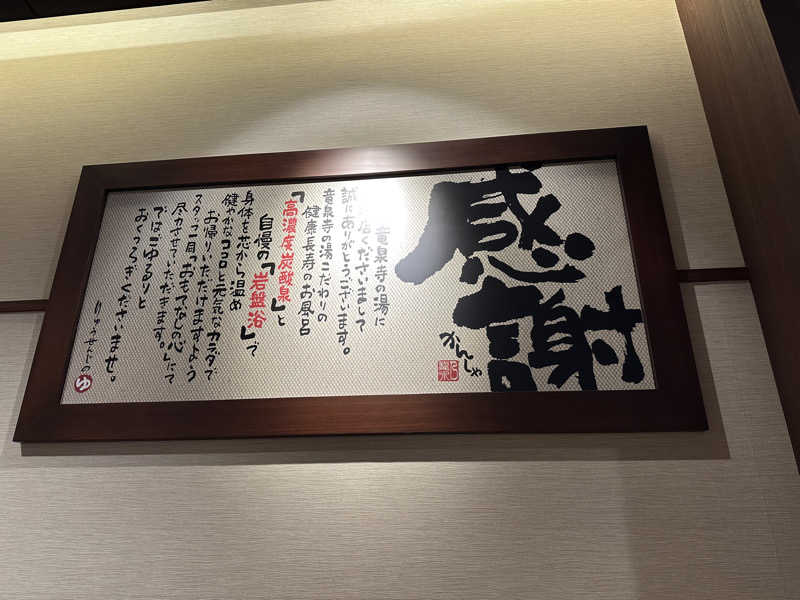 感謝
かんしゃ
竜泉寺の湯に
店くださいまして
誠にありがとうございます。
竜泉寺の湯こだわりの
健康長寿のお風呂
「高濃度炭酸泉」と
自慢の「岩盤浴」で
身体を芯から温め
健やかなココロと元気なカラダで
お帰りいただけますよう
スタッフ一同「おもてなしの心」にて
尽力させていただきます。
ではごゆるりと
おくつろぎくださいませ。
りゅうせんじの
ゆ